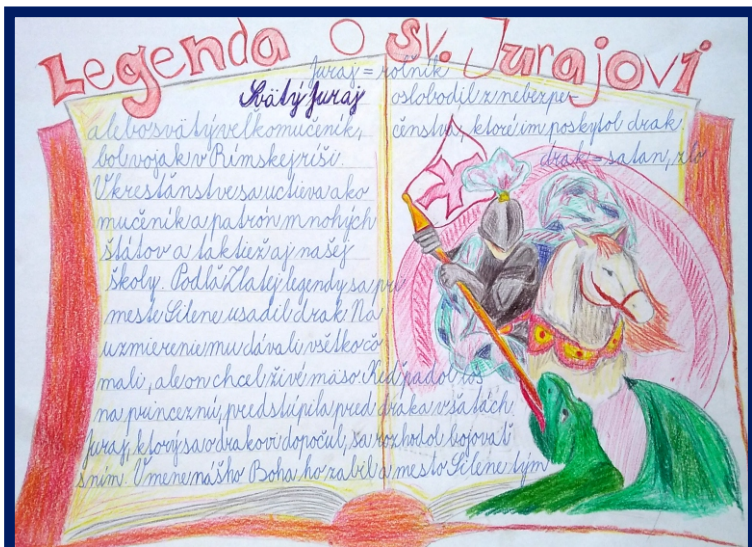 Legenda O sv. Jurajovi
Juraj = roľník
Svätý Juraj
alebo svätý veľkomučeník,
bol vojak v Rímskej ríši.
V kresťanstve sa uctieva ako
mučeník a patrón mnohých
štátov a taktiež aj našej
školy. Podľa Zlatej legendy sa pri
meste Silene usadil drak. Na
uzmierenie mu dávali všetko čo
mali, ale on chcel živé mäso. Keď padol los
na princeznú, predstúpila pred draka v šatách.
Juraj, ktorý sa o drakovi dopočul, sa rozhodol bojovať
s ním. V mene nášho Boha ho zabil a mesto Silene tým
oslobodil z nebezpe
čenstva, ktoré im poskytol drak.
drak = satan, zlo